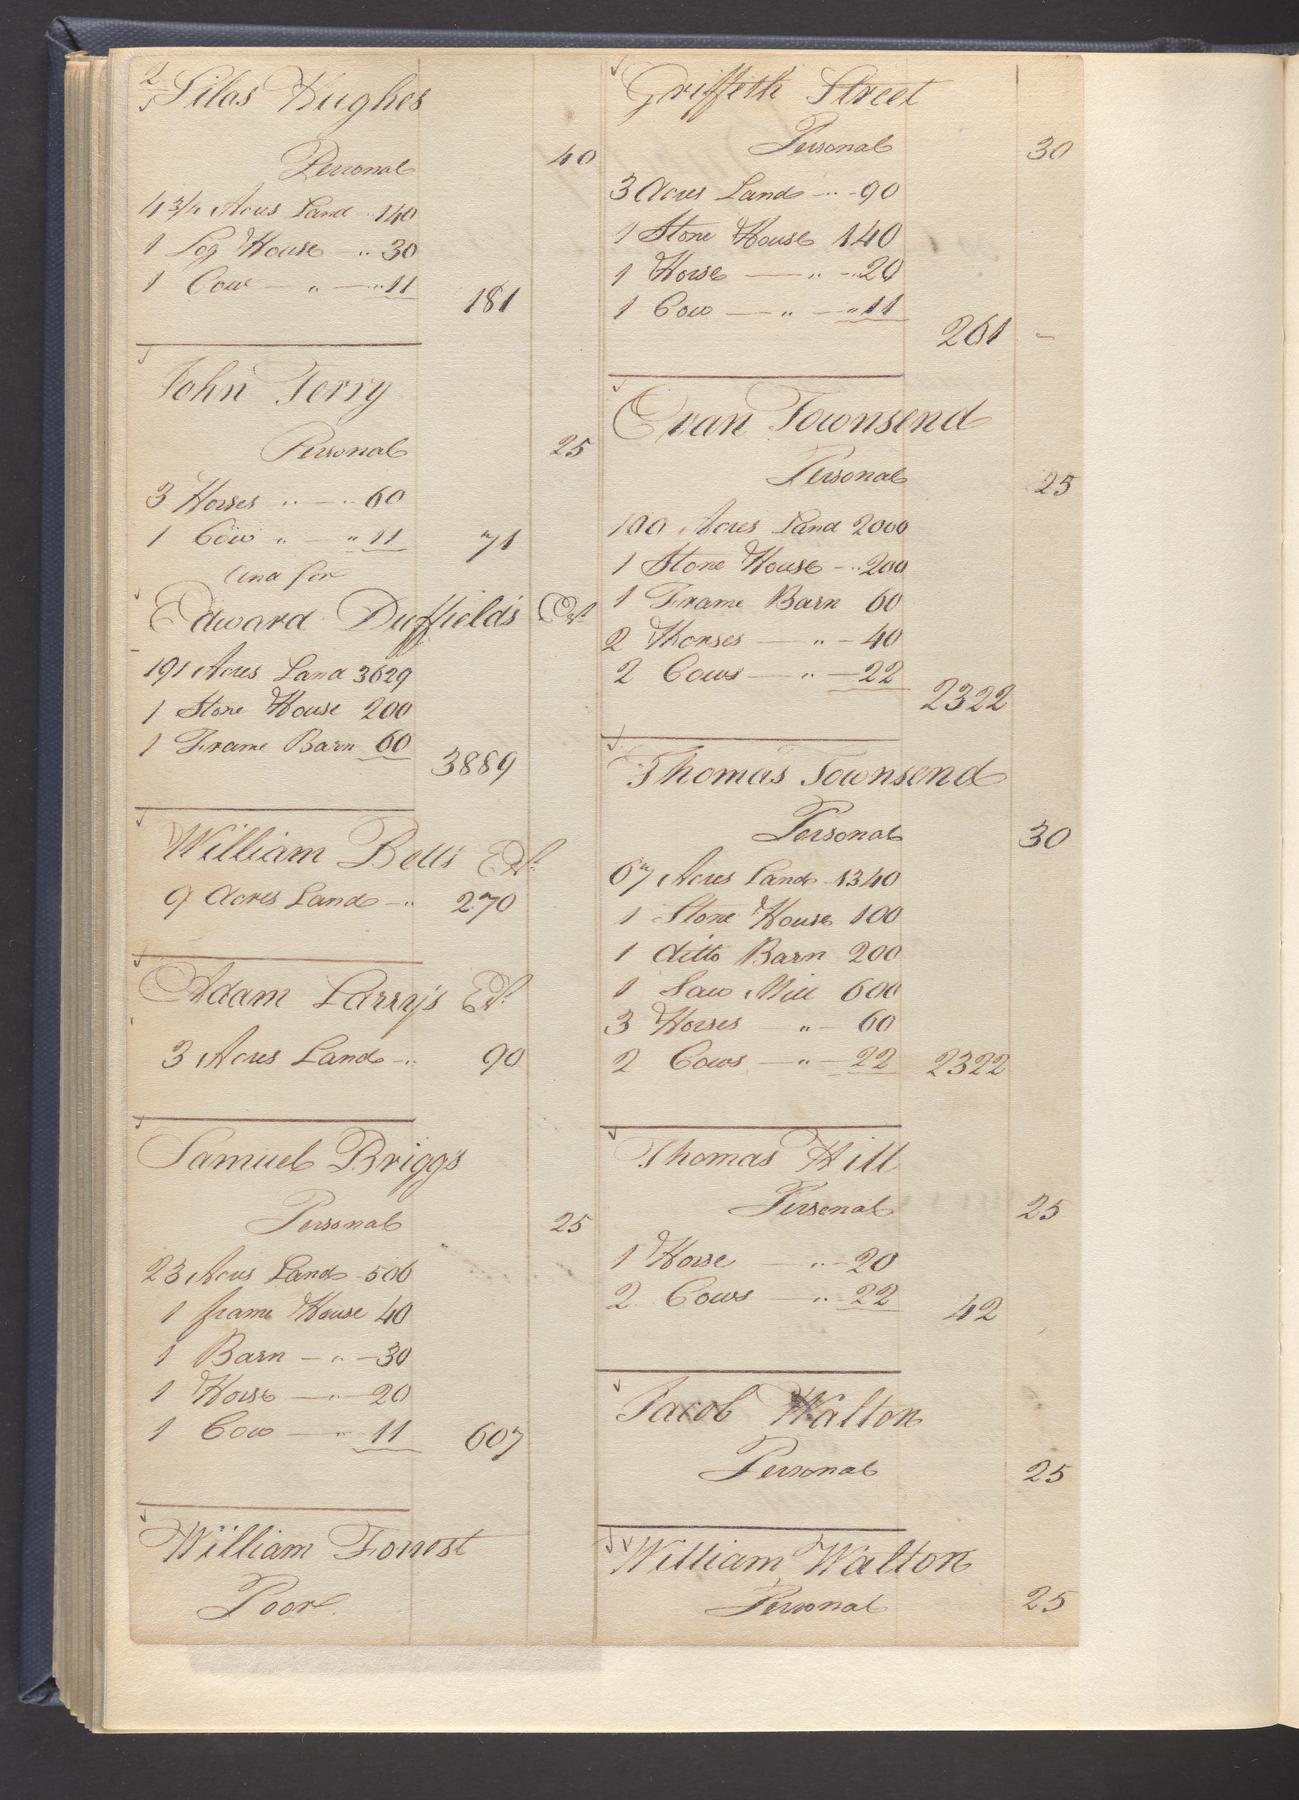 2
Silas Hughes
Personal 40
4 3/4 Acres Land " 140
1 Log House " 30
1 Cow " 11 181
John Torry
Personal 25
3 Horses " 60
1 Cow " 11 71
and for
Edward Duffield's Est
191 Acres Land 3629
1 Stone House 200
1 Frame Barn 60 3889
William Bells Est
9 Acres Land " 270
Adam Larry's Est
3 Acres Land " 90
Samuel Briggs
Personal 25
23 Acres Land 506
1 frame House 40
1 Barn " 30
1 Horse " 20
1 Cow " 11 607
William Forrest
Poor
Griffeth Street
Personal 30
3 Acres Land " 90
1 Stone House 140
1 Horse " 20
1 Cow " 11
261
Evan Townsend
Personal 25
100 Acres Land 2000
1 Stone House " 200
1 Frame Barn 60
2 Horses " 40
2 Cows " 22
2322
Thomas Townsend
Personal 30
67 Acres Land 1340
1 Stone House 100
1 ditto Barn 200
1 Saw Mill 600
3 Horses " 60
2 Cows " 22 2322
Thomas Hill
Personal 25
1 Horse " 20
2 Cows " 22 42
Jacob Walton
Personal 25
William Walton
Personal 25